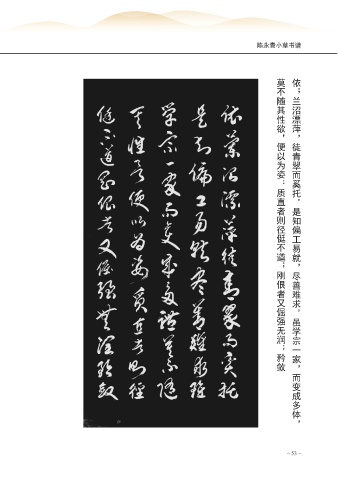 陈永贵小草书谱
依；兰沼漂萍，徒青翠而奚托，是知偏工易就，尽善难求，虽学宗一家，而变成多体，
莫不随其性欲，便以为姿：质直者则径侹不道；刚佷者又倔强无润；矜敛
依兰沼漂萍徒青翠而奚托
是知偏工易就尽善难求虽
学宗一家而变成多体莫不随
其性欲便以为姿质直者则径
侹不道刚佷者又倔强无润矜敛
- 53 -